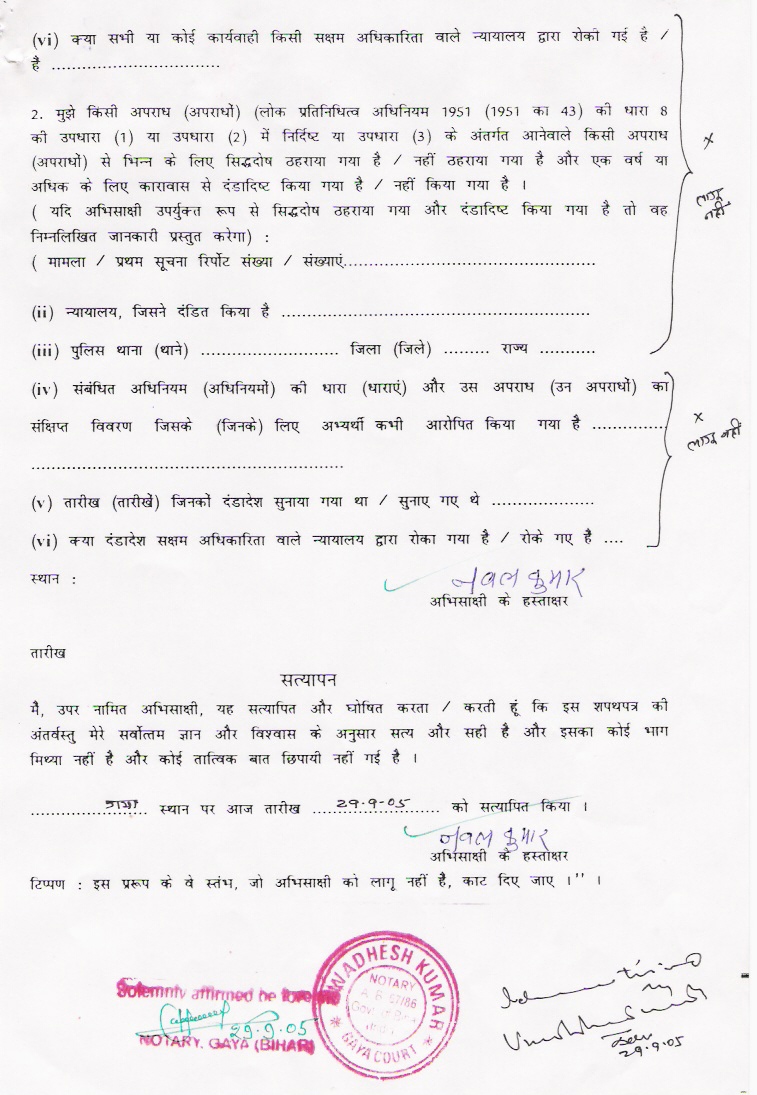 (vi) क्या सभी या कोई कार्यवाही किसी सक्षम अधिकारिता वाले न्यायालय द्वारा रोकी गई है /
है ................................
2. मुझे किसी अपराध (अपराधों) (लोक प्रतिनिधित्व अधिनियम 1951 (1951 का 43) की धारा 8
की उपधारा (1) या उपधारा (2) में निर्दिष्ट या उपधारा (3) के अंतर्गत आनेवाले किसी अपराध
(अपराधों) से भिन्न के लिए सिद्धदोष ठहराया गया है / नहीं ठहराया गया है और एक वर्ष या
अधिक के लिए कारावास से दंडादिष्ट किया गया है / नहीं किया गया है ।
( यदि अभिसाक्षी उपर्युक्त रूप से सिद्धदोष ठहराया गया और दंडादिष्ट किया गया है तो वह
निम्नलिखित जानकारी प्रस्तुत करेगा) :
x
लागू नहीं
( मामला / प्रथम सूचना रिर्पोट संख्या / संख्याएं................................................
(ii) न्यायालय, जिसने दंडित किया है ...........................................................
(iii) पुलिस थाना (थाने) .......................... जिला (जिले) ......... राज्य ...........
(iv) संबंधित अधिनियम (अधिनियमों) की धारा (धाराएं) और उस अपराध (उन अपराधों) का
संक्षिप्त विवरण जिसके (जिनके) लिए अभ्यर्थी कभी आरोपित किया गया है ..............
............................................................
x
लागू नहीं
(v) तारीख (तारीखें) जिनकों दंडादेश सुनाया गया था / सुनाए गए थे ....................
(vi) क्या दंडादेश सक्षम अधिकारिता वाले न्यायालय द्वारा रोका गया है / रोके गए है ....
स्थान :
नवल कुमार
अभिसाक्षी के हस्ताक्षर
तारीख
सत्यापन
मै, उपर नामित अभिसाक्षी, यह सत्यापित और घोषित करता / करती हूं कि इस शपथपत्र की
अंतर्वस्तु मेरे सर्वोत्तम ज्ञान और विश्वास के अनुसार सत्य और सही है और इसका कोई भाग
मिथ्या नहीं है और कोई तात्विक बात छिपायी नहीं गई है ।
......गया...... स्थान पर आज तारीख ....29.9-05.... को सत्यापित किया ।
नवल कुमार
अभिसाक्षी के हस्ताक्षर
टिप्पण : इस प्ररूप के वे स्तंभ, जो अभिसाक्षी को लागू नहीं है, काट दिए जाए ।'' ।
Solemnly affirmed be fore me
29.9.05
NOTARY. GAYA (BIHAR)
WADHESH KUMAR
NOTARY
GAYA COURT
29.9.05